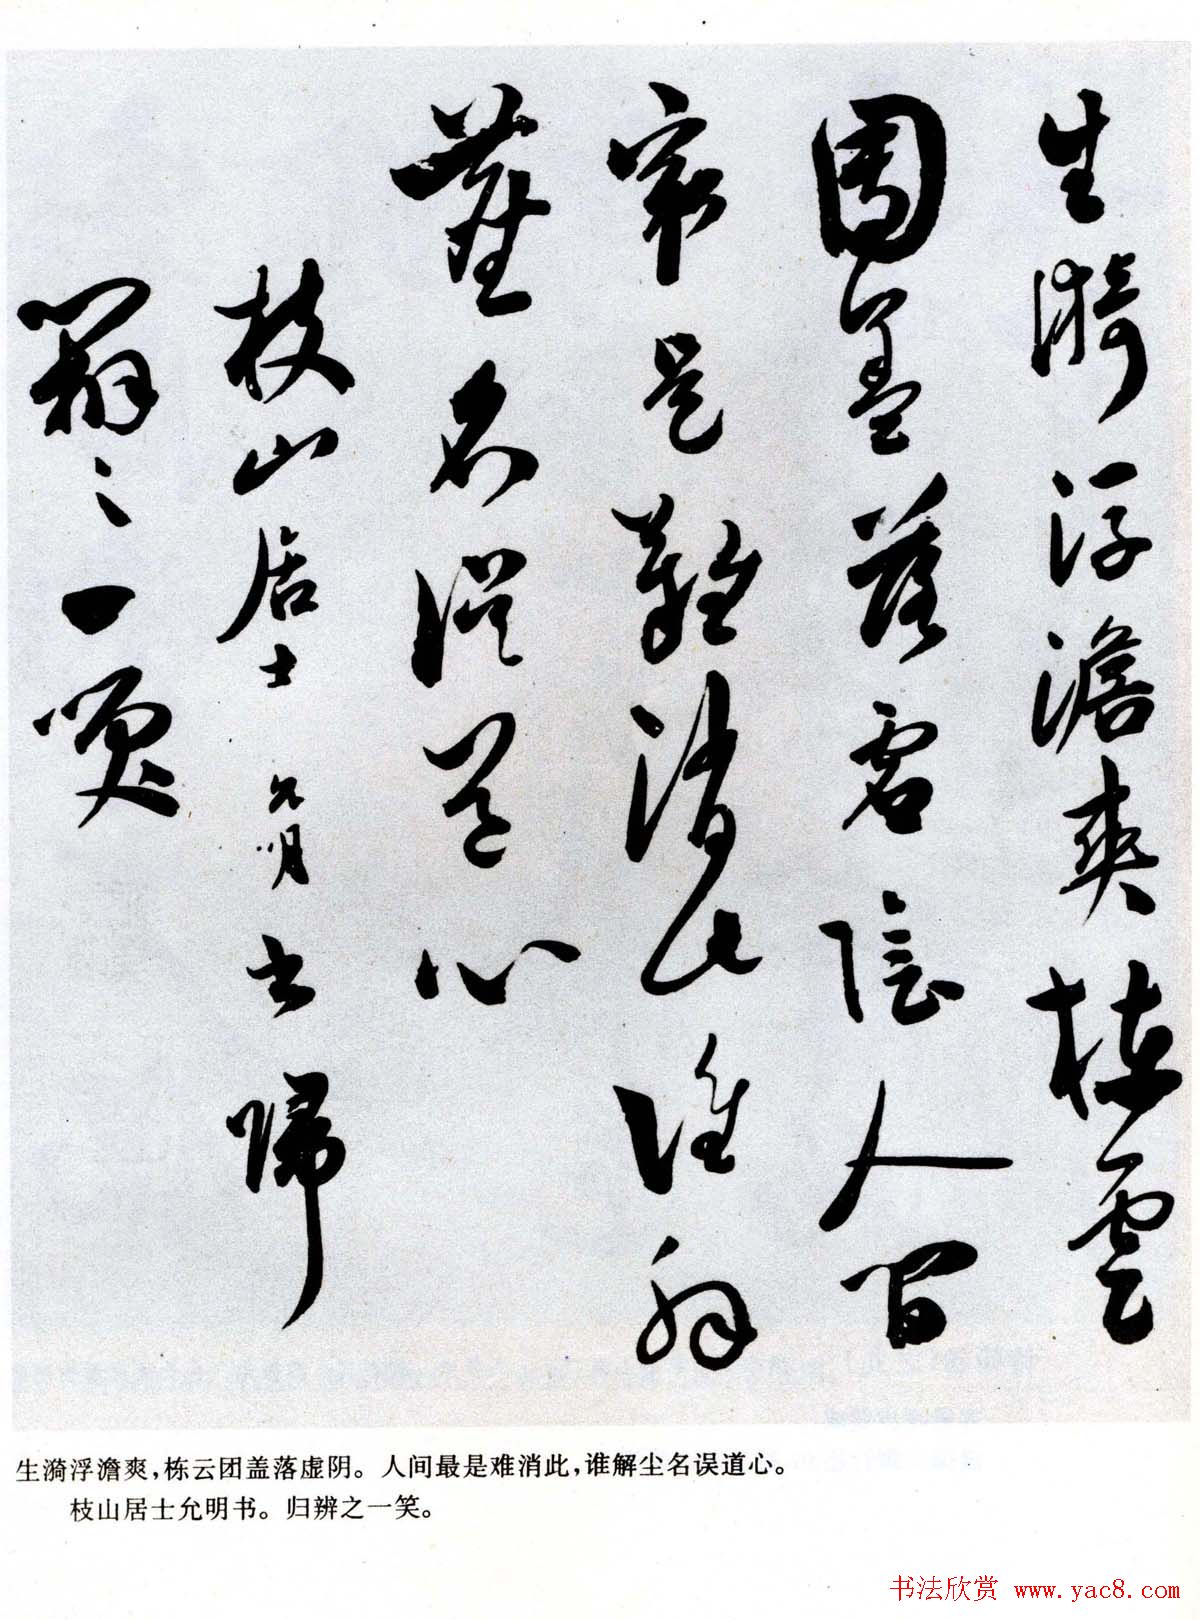 生漪浮澹爽栋雲
團盖落虚陰人間
最是難消此誰解
塵名误道心
枝山居士允明書歸
辦之一笑
生漪浮澹爽，栋云团盖落虚阴。人间最是难消此，谁解尘名误道心。
枝山居士允明书。归辨之一笑。
书法欣赏 www.yac8.com